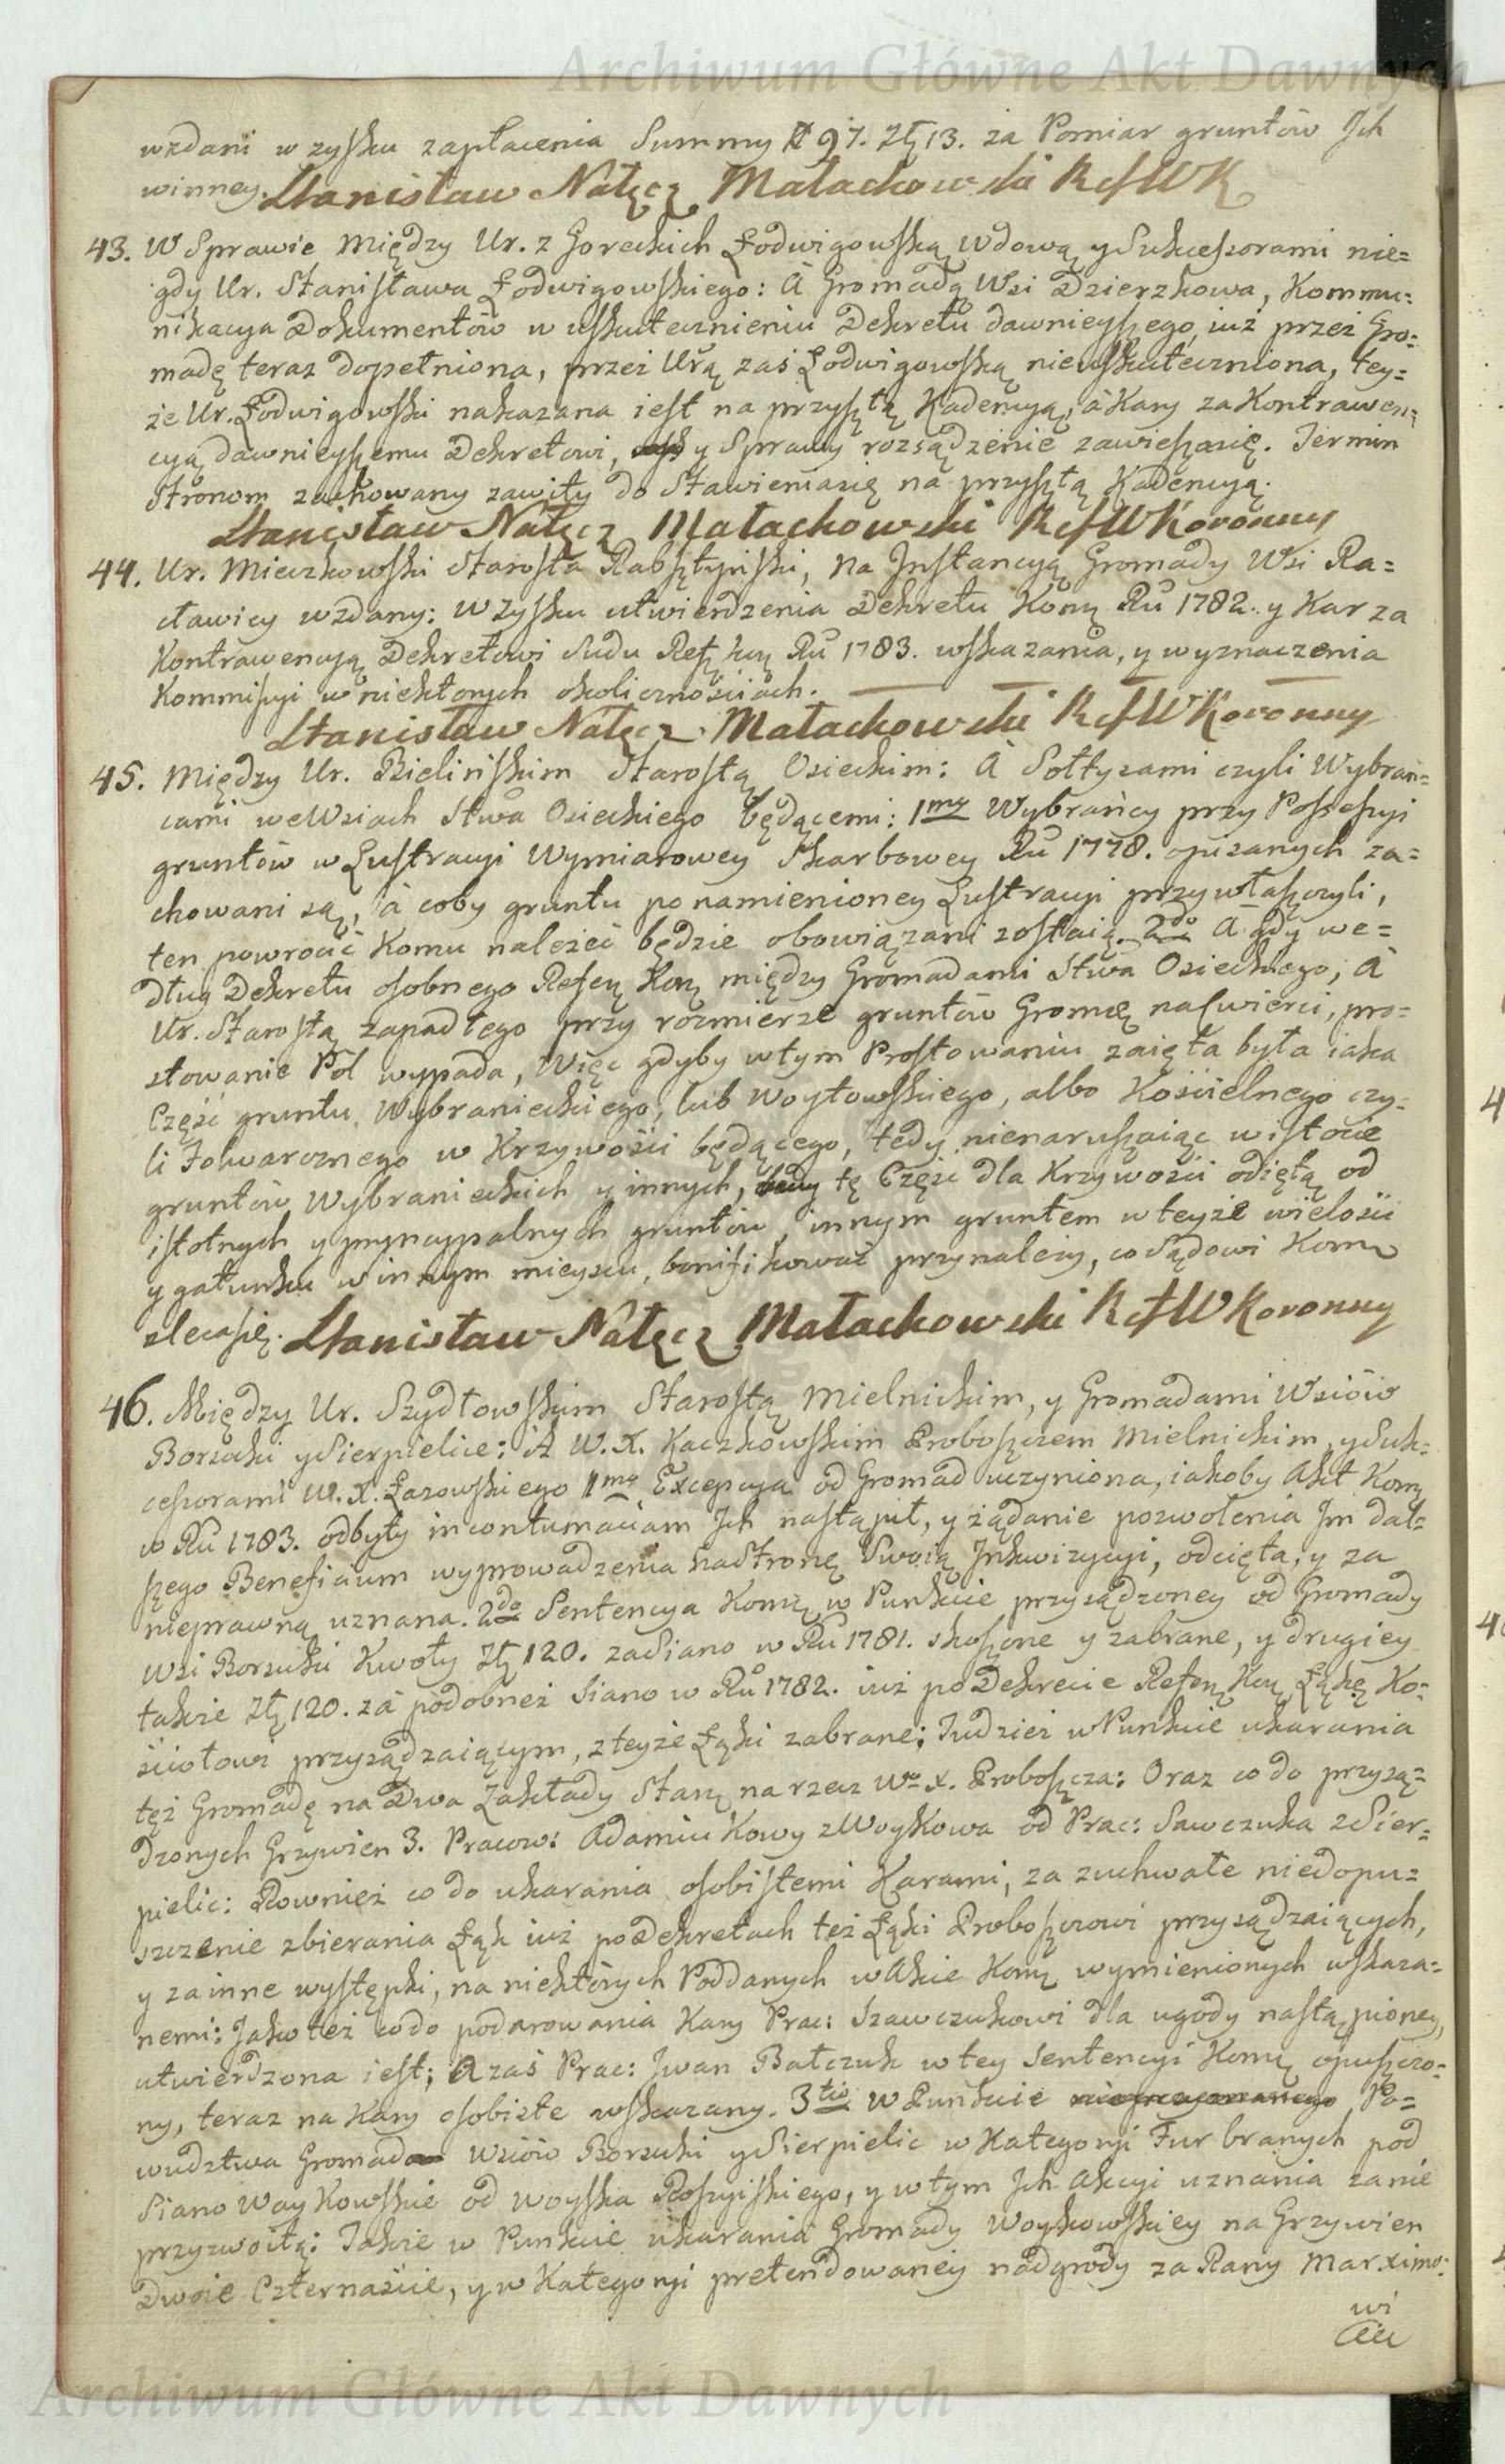 Archiwum Główne Akt Dawnych
wzdani w zysku zapłacenia Summy # 97. Zł 13. za Pomiar gruntów Ich
winney. Stanisław Nałęcz Małachowski RefWK
43. W Sprawie Między Ur. z Goreckich Łodwigowską Wdową y Sukcessorami nie=
gdy Ur. Stanisława Łodwigowskiego: A Gromadą Wsi Dzierzkowa, Kommu=
nikacya Dokumentów w uskutecznieniu Dekretu dawnieyszego iuż przez Gro=
madę teraz dopełniona, przez Urą zaś Łodwigowską nieuskuteczniona, tey=
że Ur. Łodwigowski nakazana iest na przyszłą Kadencyą, à Kary za Kontrawen=
cyą dawnieyszemu Dekretowi, y Sprawy rozsądzenie zawieszasię. Termin
Stronom zachowany zawity do Stawieniasię na przyszłą Kadencyą.
Stanisław Nałęcz Małachowski RefWKoronny
44. Ur. Mieczkowski Starosta Rabsztyński, na Instancyą Gromady Wsi Ra=
cławicy wzdany: W Zysku utwierdzenia Dekretu Kom Ru 1782. y Kar za
Kontrawencyą Dekretowi Sudu Ref Kor Ru 1783. wskazania, y wyznaczenia
Kommissyi w niektorych okolicznościach.
Stanisław Nałęcz Małachowski RefWKoronny
45. Między Ur. Bielińskim Starostą Osieckim: A Sołtysami czyli Wybrań=
cami weWsiach Stwa Osieckiego będącemi: 1mo Wybrańcy przy Possessyi
gruntów w Lustracyi Wymiarowey Skarbowey Ru 1778. opisanych za=
chowani są, à coby gruntu po namienioney Lustracyi przywłaszczyli,
ten powrocić Komu należeć będzie obowiązani zostaią. 2do A gdy we=
dług Dekretu osobnego Refery Kory między Gromadami Stwa Osieckiego, A
Ur. Starostą zapadłego przy rozmierze gruntów Gromę na ćwierci, pro=
stowanie Pól wypada, Więc gdyby w tym Prostowaniu zaięta była iaka
Część gruntu Wybranieckiego, lub Woytowskiego, albo Kościelnego czy=
li Folwarcznego w Krzywości będącego, tedy nienaruszaiąc w istocie
gruntów Wybranieckich y innych, tę Część dla Krzywości odiętą od
istotnych y pryncypalnych gruntów, innym gruntem w teyże wielości
y gatunku w innym mieyscu, bonifikować przynależy, co Sądowi Kom
zlecasię. Stanisław Nałęcz Małachowski RefWKoronny
46. Między Ur. Szydłowskim Starostą Mielnickim, y Gromadami Wsiów
Borsuki y Sierpielice: A W. X. Kaczkowskim Proboszczem Mielnickim, y Suk=
cessorami W. X. Łazowskiego 1mo Excepcya od Gromad uczyniona, iakoby Akt Kom
w Ru 1783. odbyty incontumaciam Ich nastąpił, y żądanie pozwolenia Im dal=
szego Beneficium wyprowadzenia na Stronę Swoią Inkwizycyi, odcięta, y za
nieprawną uznana. 2do Sentencya Kom w Punkcie przysądzoney od Gromady
wsi Borsuki Kwoty Zł 120. za Siano w Ru 1781. skoszone y zabrane, y drugiey
także Zł 120. za podobneż Siano w Ru 1782. iuż po Dekrecie Refery Kory Łąkę Ko=
ściołowi przysądzaiącym, z teyże Łąki zabrane; Tudzież w Punkcie ukarania
też Gromadę na Dwa Zakłady Stany na rzecz Wo X. Proboszcza: Oraz co do przysą=
dzonych Grzywien 3. Pracow: Adamiukowy z Woykowa od Prac: Sawczuka z Sier=
pielic: Rownież co do ukarania osobistemi Karami, za zuchwałe niedopu=
szczenie zbierania Łąk iuż po Dekretach też Łąki Proboszczowi przysądzaiących,
y za inne występki, na niektórych Poddanych w Akcie Kom wymienionych wskaza=
nemi: Jako też co do podarowania Kary Prac: Szawczukowi dla ugody nastąpioney,
utwierdzona iest; A zaś Prac: Iwan Batczuk w tey Sentencyi Kom opuszczo=
ny, teraz na Kary osobiste wskazany. 3tio W Punkcie Po=
wudztwa Gromad Wsiów Borsuki y Sierpielic w Kategoryi Fur branych pod
Siano Woykowskie od Woyska Rossyiskiego, y w tym Ich Akcyi uznania za nie
przyzwoitą; Także w Punkcie ukarania Gromady Woykowskiey na Grzywien
Dwoie Czternaście, y w Kategoryi pretendowaney nadgrody za Rany Marximo=
wi
Archiwum Główne Akt Dawnych